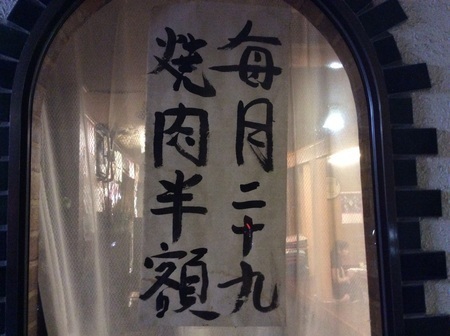 毎月二十九
焼肉半額